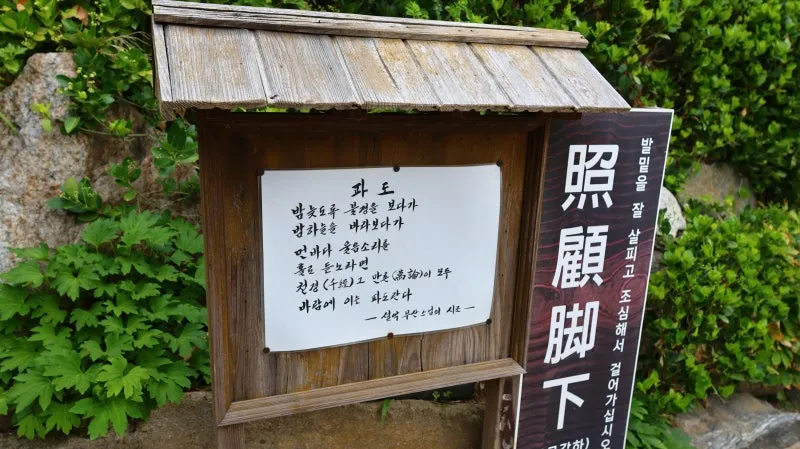 파도
밤늦도록 불경을 보다가
밤하늘을 바라보다가
먼바다 울음소리를
홀로 듣노라면
천경(千經)그 만론(萬論)이 모두
바람에 이는 파도란다
— 설악 무산스님의 시조 —
照顧脚下
발밑을 잘 살피고 조심해서 걸어가십시오